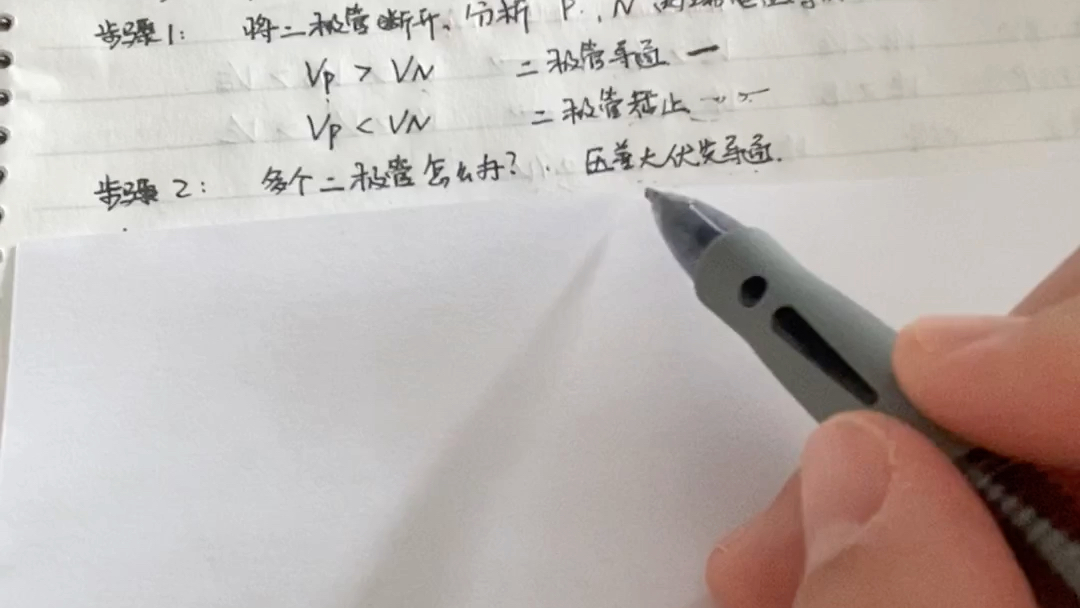 步骤1: 将二极管断开、分析 P、N 两端电位
Vp > VN 二极管导通 一
Vp < VN 二极管截止
步骤2: 多个二极管怎么办? 压差大优先导通.